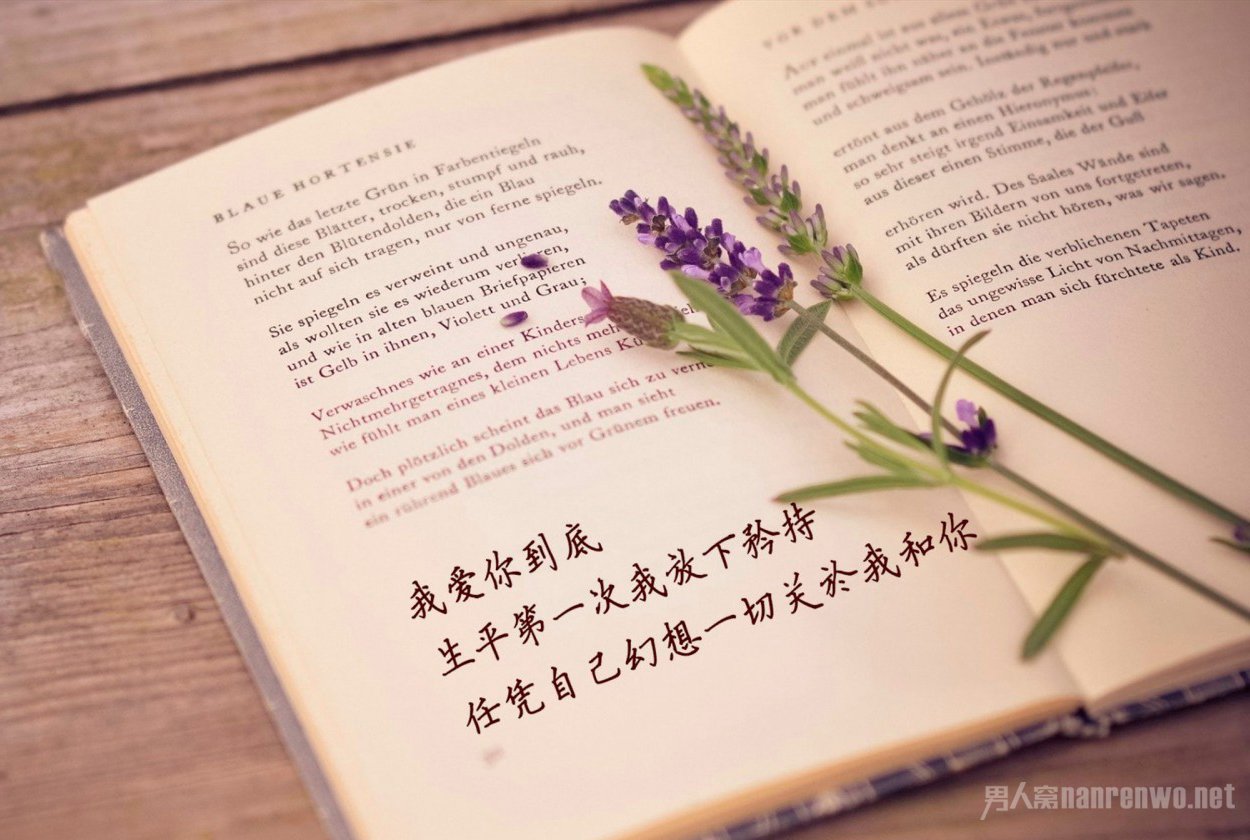 BLAUE HORTENSIE
So wie das letzte Grün in Farbentiegeln
sind diese Blätter, trocken, stumpf und rauh,
hinter den Blütendolden, die ein Blau
nicht auf sich tragen, nur von ferne spiegeln.
Sie spiegeln es verweint und ungenau,
als wollten sie es wiederum verlieren,
und wie in alten blauen Briefpapieren
ist Gelb in ihnen, Violett und Grau;
Verwaschnes wie an einer
Nichtmehrgetragnes, dem nichts
wie fühlt man eines kleinen Lebens
Doch plötzlich scheint das Blau sich zu
in einer von den Dolden, und man sieht
ein rührend Blaues sich vor Grünem freuen.
我爱你到底
生平第一次我放下矜持
任凭自己幻想一切关於我和你
VOR DEM
Auf einmal ist aus allem Grün
man weiß nicht was, ein Etwas
man fühlt ihn näher an die Fenster kommen
und schweigsam sein. Inständig nur und stark
ertönt aus dem Gehölz der Regenpfeifer,
man denkt an einen Hieronymus:
so sehr steigt irgend Einsamkeit und Eifer
aus dieser einen Stimme, die der Guß
erhören wird. Des Saales Wände sind
mit ihren Bildern von uns fortgetreten,
als dürften sie nicht hören, was wir sagen.
Es spiegeln die verblichenen Tapeten
das ungewisse Licht von Nachmittagen,
in denen man sich fürchtete als Kind.
男人窝nanrenwo.net